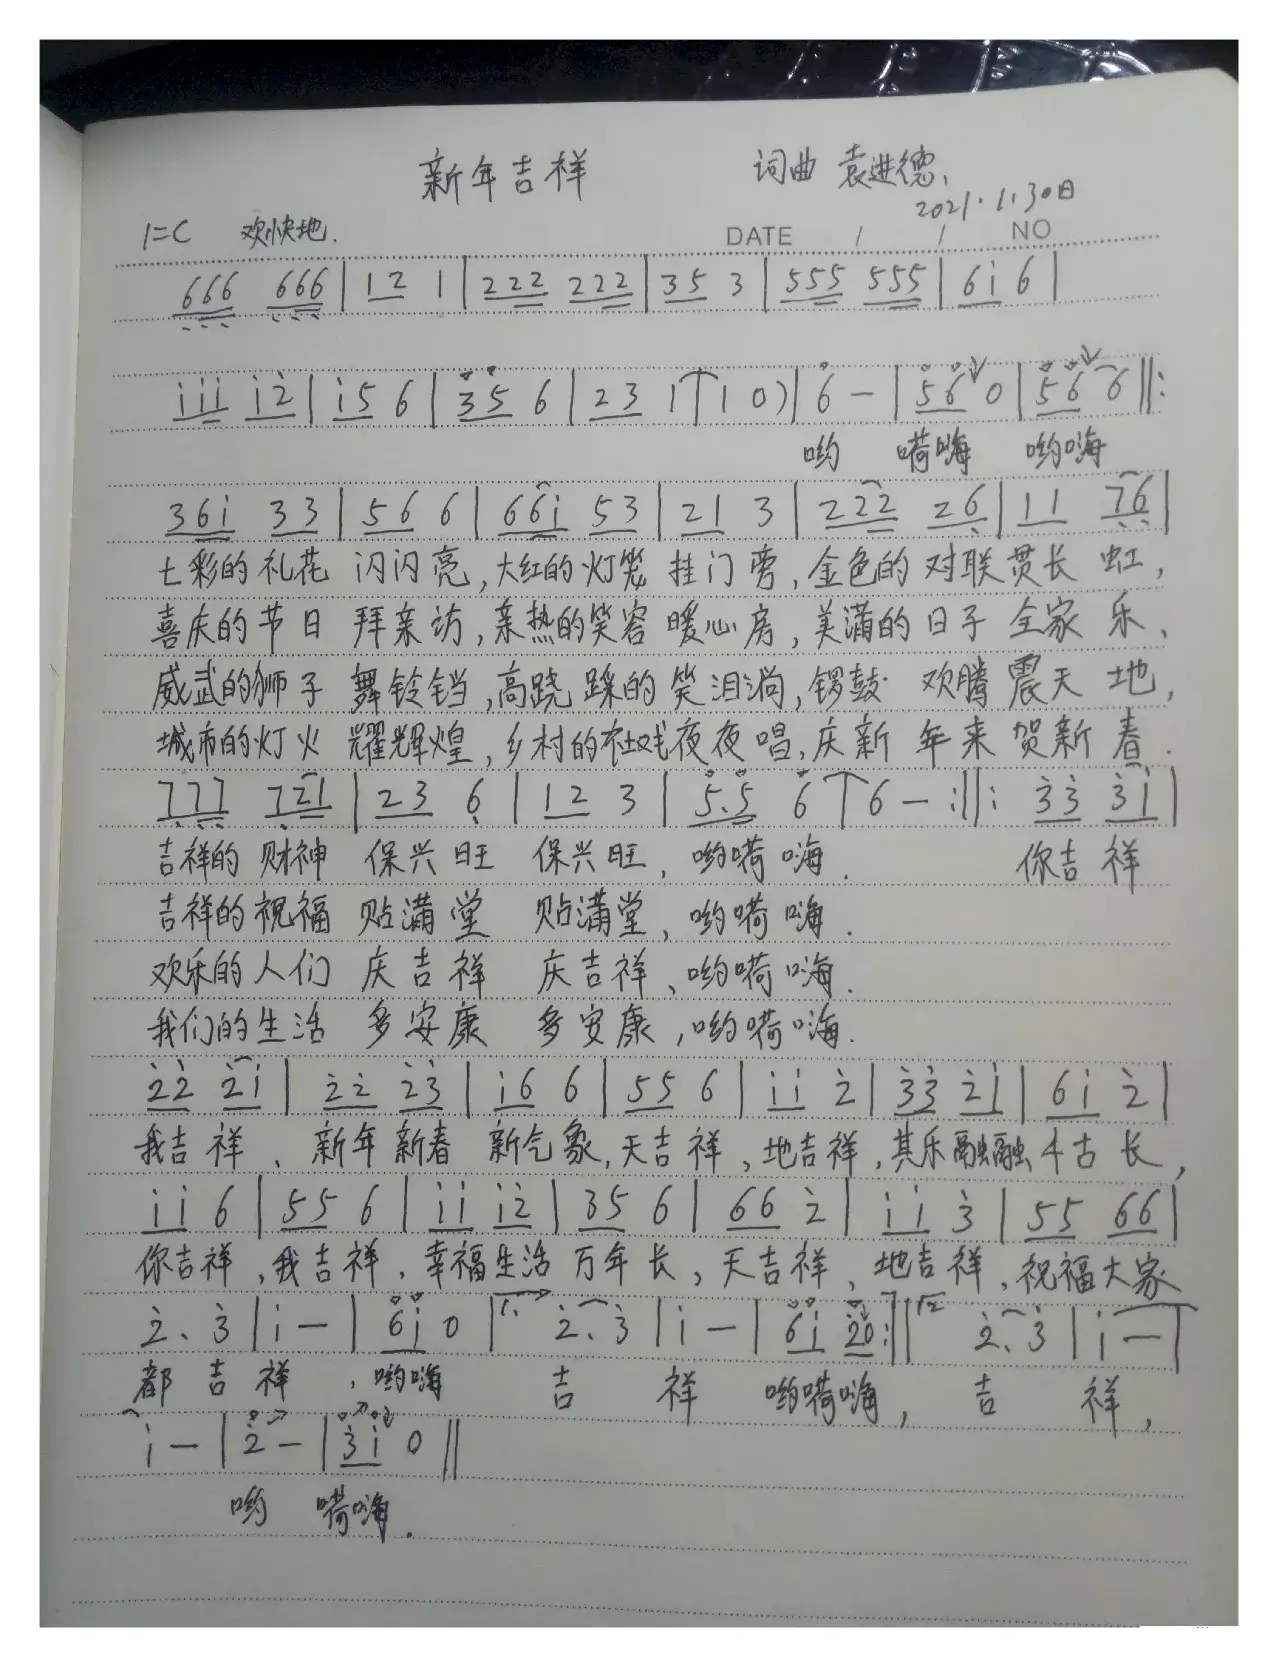 新年吉祥 词曲 袁进德
2021.1.30日
1=C 欢快地.
DATE / / NO
666 666 | 12 1 | 222 222 | 35 3 | 555 555 | 6i 6 |
iii i2 | i5 6 | 35 6 | 23 1 | 1 0) | 6 — | 56 0 | 56 6 ‖:
哟 嗬嗨 哟嗨
36i 33 | 56 6 | 66i 53 | 21 3 | 222 26 | 11 76 |
七彩的礼花 闪闪亮,大红的灯笼 挂门旁,金色的对联贯长 虹,
喜庆的节日 拜亲访,亲热的笑容暖心房,美满的日子 全家 乐、
威武的狮子 舞铃铛,高跷踩的笑泪淌,锣鼓 欢腾震天 地,
城市的灯火 耀辉煌,乡村的社戏夜夜唱,庆新 年来 贺新春.
777 721 | 23 6 | 12 3 | 5.5 6 | 6 — :‖: 33 31 |
吉祥的 财神 保兴旺 保兴旺,哟嗬 嗨. 你吉 祥
吉祥的祝福 贴满堂 贴满堂,哟嗬 嗨.
欢乐的人们 庆吉祥 庆吉祥、哟嗬 嗨.
我们的生活 多安康 多安康,哟嗬嗨.
22 2i | 22 23 | i6 6 | 55 6 | ii 2 | 33 2i | 6i 2 |
我吉祥、新年新春 新气象,天吉祥,地吉祥,其乐融融千古长,
ii 6 | 55 6 | ii i2 | 35 6 | 66 2 | ii 3 | 55 66 |
你吉祥,我吉祥,幸福生活 万年长,天吉祥、地吉祥,祝福大家
2、3 | i — | 6i 0 | 1. 2、3 | i — | 6i 20 :‖ 2 2、3 | i — |
都吉祥,哟嗨 吉 祥 哟嗬嗨,吉 祥,
i — | 2 — | 3i 0 ‖
哟 嗬嗨.